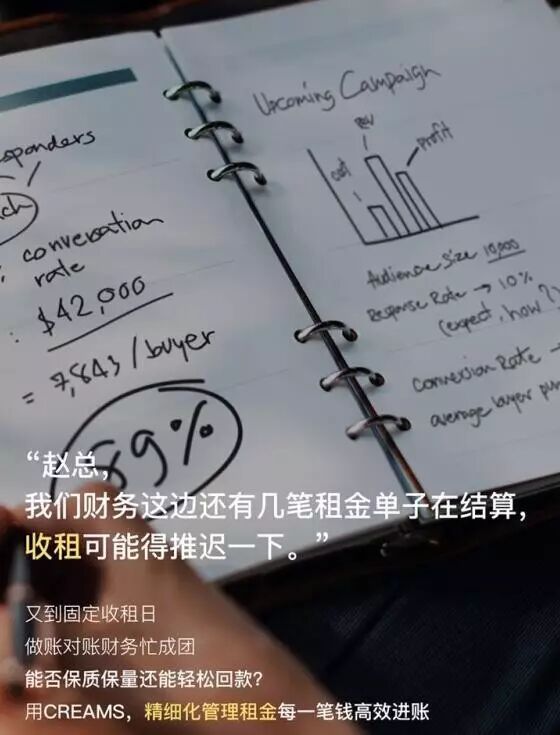 sponders
ch
conversation
rate
: $42,000
= 7,843 / buyer
89%
Upcoming Campaign
cost
rev
profit
Audience Size 10,000
Response Rate → 10%
(expect, how?)
Conversion Rate →
average buyer pur
“赵总,
我们财务这边还有几笔租金单子在结算,
收租可能得推迟一下。”
又到固定收租日
做账对账财务忙成团
能否保质保量还能轻松回款?
用CREAMS，精细化管理租金每一笔钱高效进账